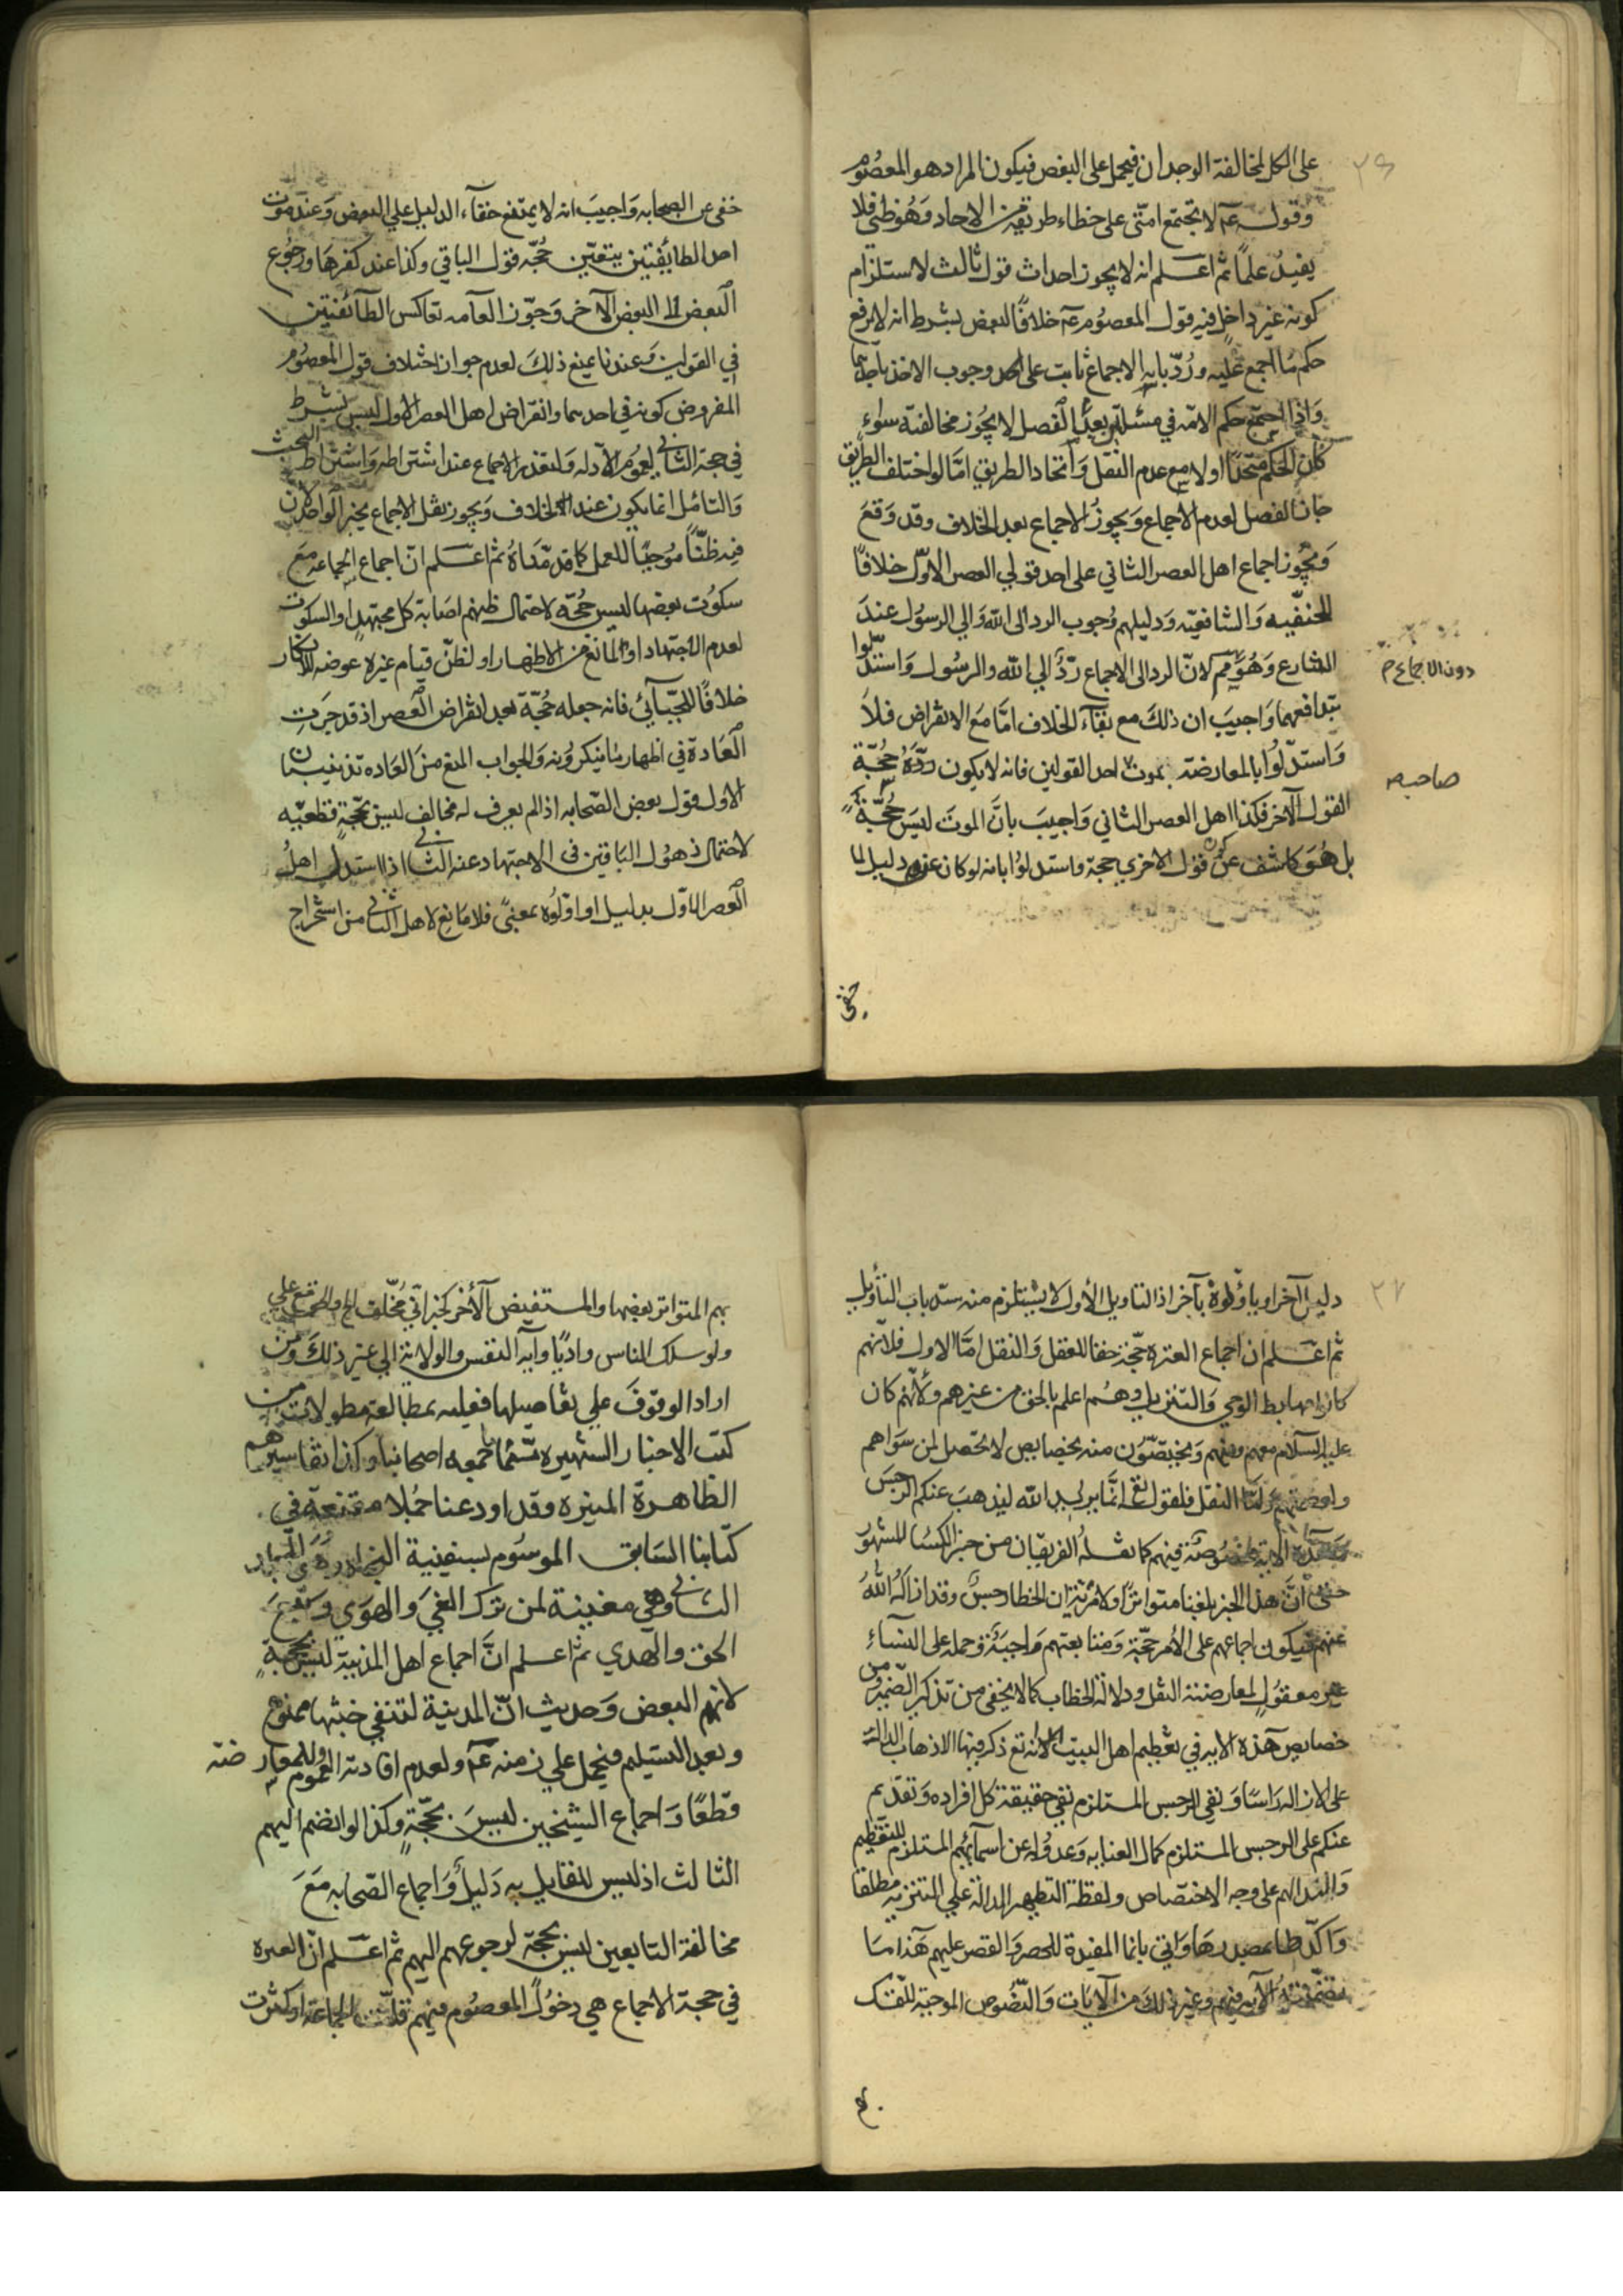 ٢٦
على الكل لمخالفة الوجدان فيحمل على البعض فيكون المراد هو المعصوم
وقوله عم لا تجتمع امتي على خطاء طريقه من الاحاد وهو ظني فلا
يفيد علماً ثم اعلم انه لا يجوز احداث قول ثالث لاستلزام
كونه غير داخل فيه قول المعصوم عم خلافاً لبعض بشرط انه لا يرفع
حكم ما اجمع عليه ورد بانه الاجماع ثابت على وجوب الاخذ باحدهما
واذا اجتمع حكم الامة في مسئلتين بعدم الفصل لا يجوز مخالفته سواء
كان الحكم متحداً اولا مع عدم النقل واتحاد الطريق امّا لو اختلف الطريق
جاز الفصل لعدم الاجماع ويجوز الاجماع بعد الخلاف وقد وقع
ويجوز اجماع اهل العصر الثاني على احد قولي العصر الاوّل خلافاً
للحنفيه والشافعيه ودليلهم وجوب الرد الى الله والي الرسول عند
الشارع وهو مم لانّ الرد الى الاجماع ردّ الي الله والرسول واستدلّوا
دون الاجماع م
بتدافعهما واجيب ان ذلك مع بقآء الخلاف امّا مع الانقراض فلا
واستدلّوا بالمعارضة بموت احد القولين فانه لا يكون ردّه حُجّة
صاحب صه
القول الآخر فكذا اهل العصر الثاني واجيب بانّ الموت ليس حُجّة
بل هو كاشف عن قول الاخري حجة واستدلوا بانه لو كان عن دليل لما
خفي
خفي عن الصحابه واجيب انه لا يمتنع خفآء الدليل علي البعض وعند موت
احد الطايفتين يتعيّن حُجّه قول الباقي وكذا عند كفرها ورجوع
البعض الى البعض الآخر وجوّز العآمه تعاكس الطآئفتين
في القولين وعندنا يمنع ذلك لعدم جواز اختلاف قول المعصوم
المفروض كونه في احدهما وانقراض اهل العصر الاول ليس بشرط
في حجة الثاني لعموم الادله ولتعذر الاجماع عند اشتراطه واشتراط البحث
والتأمل انما يكون عند الخلاف ويجوز نقل الاجماع بخبر الواحد لان
فيه ظنّاً مُوجباً للعمل كما قدّمناه ثم اعلم انّ اجماع الجماعه مع
سكوت بعضها ليس حُجّه لاحتمال ظنهم اصابة كل مجتهد او السكوت
لعدم الاجتهاد او المانع من الاظهار او لظنّ قيام غيره عوضه للانكار
خلافاً للجبّآئي فانه جعله حُجّة بعد انقراض العصر اذ قد جرت
العادة في اظهار ما ينكرونه والجواب المنع من العاده تذنيبان
الاول قول بعض الصّحابه اذا لم يعرف له مخالف ليس بحجّة قطعيّه
لاحتمال ذهول الباقين في الاجتهاد عنه الثاني اذا استدل اهل
العصر الاوّل بدليل او اوّلوه بمعنى فلا مانع لاهل الثاني من استخراج
٢٧
دليل آخر او ياوّلوه بآخر اذ التاويل الأول لا يستلزم منه سد باب التأويل
ثم اعلم ان اجماع العترة حجّة حقا للعقل والنقل امّا الاول فلانهم
كانوا مهابط الوحي والتنزيل وهم اعلم بالحق من غيرهم ولأنهم كان
عليه السلام معهم ومنهم ويختصّون منه بخصايص لا تحصل لمن سواهم
واما النقل فلقوله تع انّما يريد الله ليذهب عنكم الرجس
وهذه الآية مخصوصة فيهم كما نقله الفريقان من خبر الكسا المشهور
حتى انّ هذا الخبر بلغنا متواتراً ولا مرية ان الخطاء رجس وقد اذاله الله
عنهم فيكون اجماعهم على الأمر حجّة ومتابعتهم واجبة وحمله على النسآء
غير معقول لمعارضته النقل ودلالة الخطاب كما لا يخفى من تذكير الضمير ومن
خصايص هذه الايه في تعظيم اهل البيت انه تع ذكر فيها الاذهاب الدالة
على الازاله راسا ونفي الرجس المستلزم نفي حقيقة كل افراده وتقديم
عنكم على الرجس المستلزم كمال العنايه وعدوله عن اسمائهم المستلزم للتعظيم
والندا لهم على وجه الاختصاص ولفظة التطهير الدالة علي التنزيه مطلقا
واكّد بمصدرها واتي بانما المفيدة للحصر والقصر عليهم هذا ما
تضمنته الآيه فيهم وغير ذلك من الآيات والنّصوص الموجبة للتمسك
بهم
بهم المتواتر بعضها والمستفيض الآخر كخبر اني مُخلّف
ولو سلك الناس وادياً وآية النفس والولاية الي غير ذلك ومن
اراد الوقوف علي تفاصيلها فعليه بمطالعة مطولات من
كتب الاخبار الشهيره سيّما ما جمعه اصحابنا وكذا تفاسيرهم
الظاهرة المنيره وقد اودعنا جُملا مقنعة في
كتابنا السّابق الموسوم بسفينة
الثاني وهي مغنية لمن ترك الغيّ والهوي وتبع
الحق والهدي ثم اعلم انّ اجماع اهل المدينة ليس بحجة
لانهم البعض وحديث انّ المدينة لتنفي خبثها ممنوع
وبعد التسليم فيحمل علي زمنه عم ولعدم افادته العموم وللمعارضة
قطعًا واجماع الشيخين ليس بحجّة وكذا لو انضم اليهم
الثالث اذ ليس للقايل به دليل واجماع الصّحابه مع
مخالفة التابعين ليس بحجّة لرجوعهم اليهم ثم اعلم انّ العبرة
في حجة الاجماع هي دخول المعصوم فيهم قلّت الجماعة او كثرت